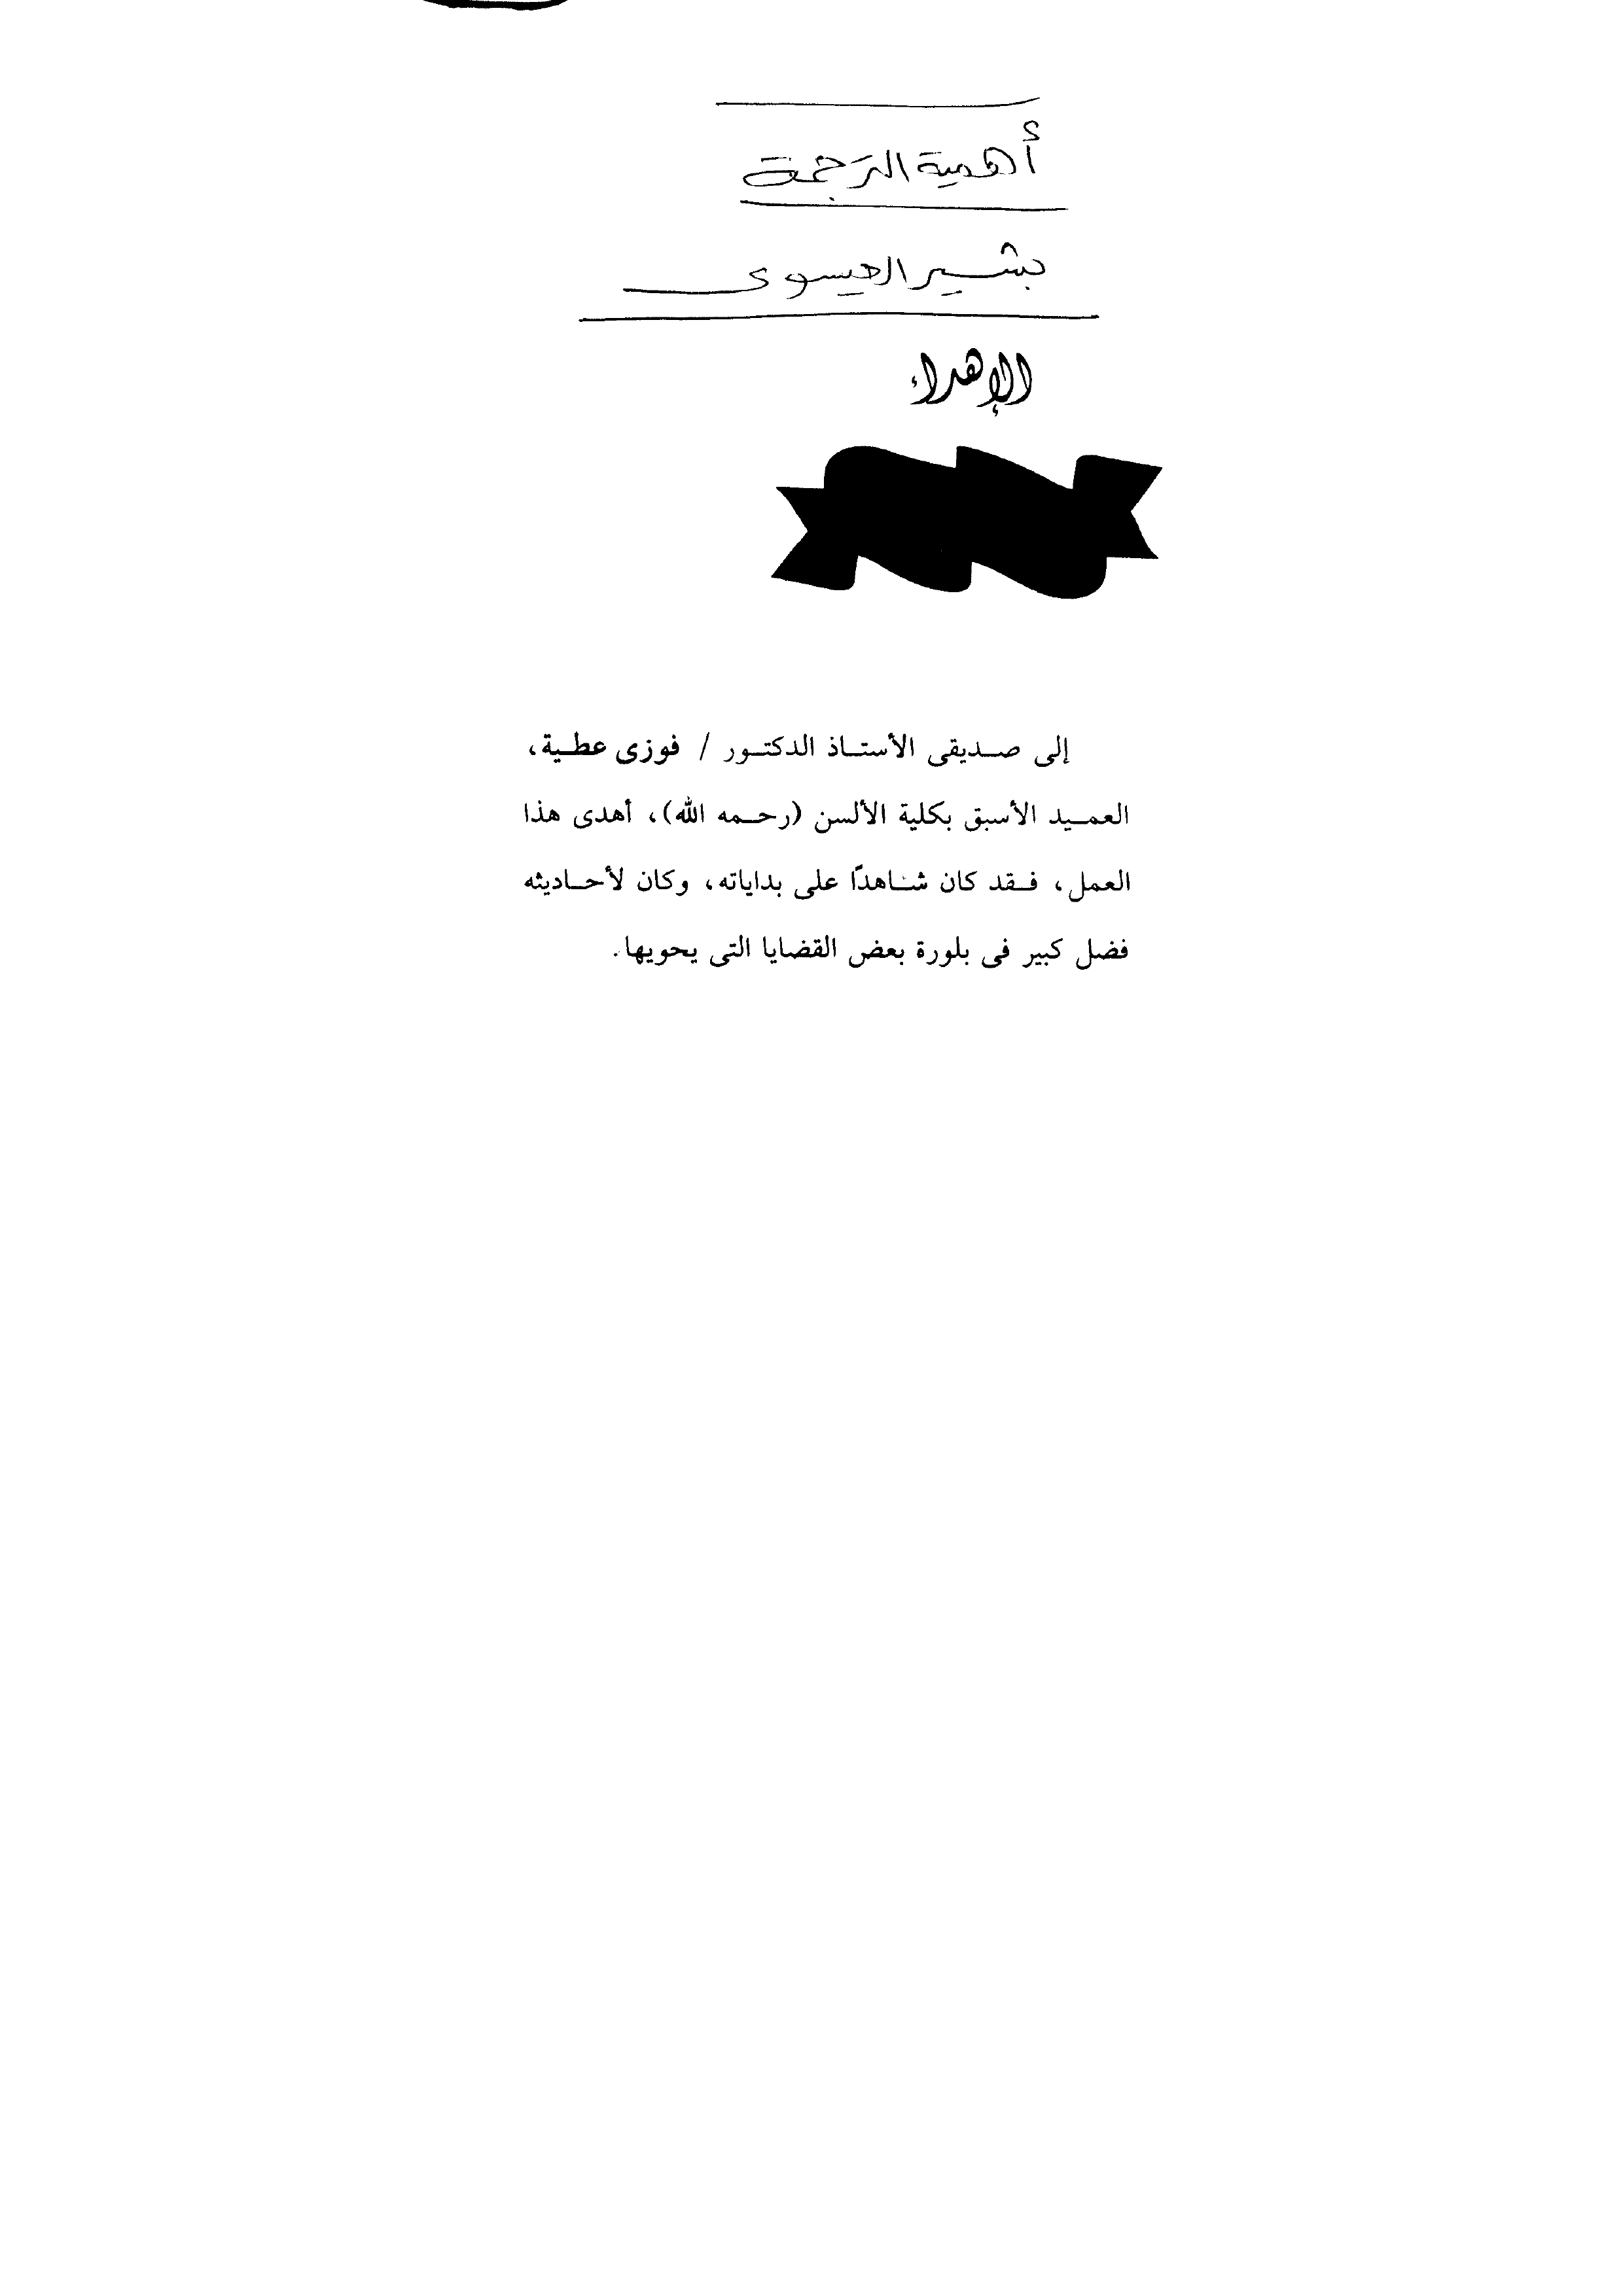 أهمية الترجمة
بشير العيسوى
الإهداء
إلى صديقى الأستاذ الدكتور / فوزى عطية،
العميد الأسبق بكلية الألسن (رحمه الله)، أهدى هذا
العمل، فقد كان شاهدًا على بداياته، وكان لأحاديثه
فضل كبير فى بلورة بعض القضايا التى يحويها.